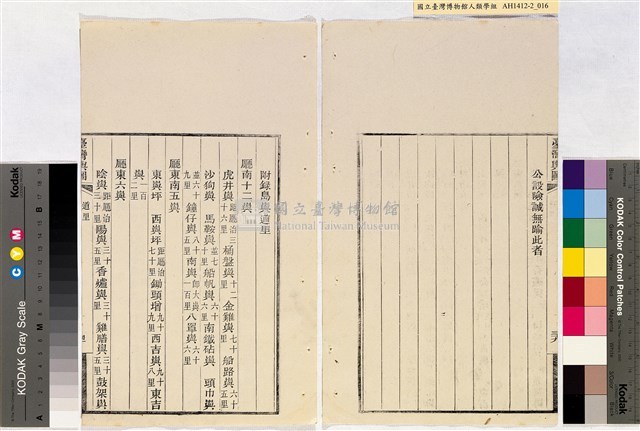 國立臺灣博物館人類學組 AH1412-2_016
公設險誠無踰此者
臺灣輿圖
附錄島嶼道里
廳南十二嶼
虎井嶼 距廳治三十六里 桶盤嶼 十二里 金雞嶼 七十里 船路嶼 六十五里
沙狗嶼 馬鞍嶼 並七十里 船帆嶼 六十六里 南鐵砧嶼 頭巾嶼
並六十九里 鐘仔嶼 八十五里 南嶼 即大嶼一百里 八罩 六十六里
廳東南五嶼
東嶼坪 西嶼坪 距廳治七十里 鋤頭增 九十里 西吉嶼 九十八里 東吉
嶼 一百二里
廳東六嶼
陰嶼 距廳治三十里 陽嶼 三十五里 香爐嶼 三十里 雞膳嶼 三十五里 鼓架嶼
臺灣輿圖
道里
國立臺灣博物館
National Taiwan Museum
Kodak
KODAK Gray Scale
C Y M
A
M
B
KODAK Color Control Patches